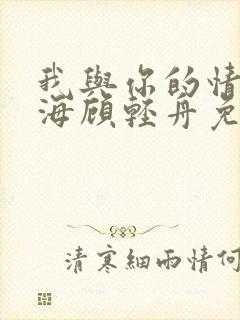 我與你的情
海顧輕舟免
清寒細雨情何